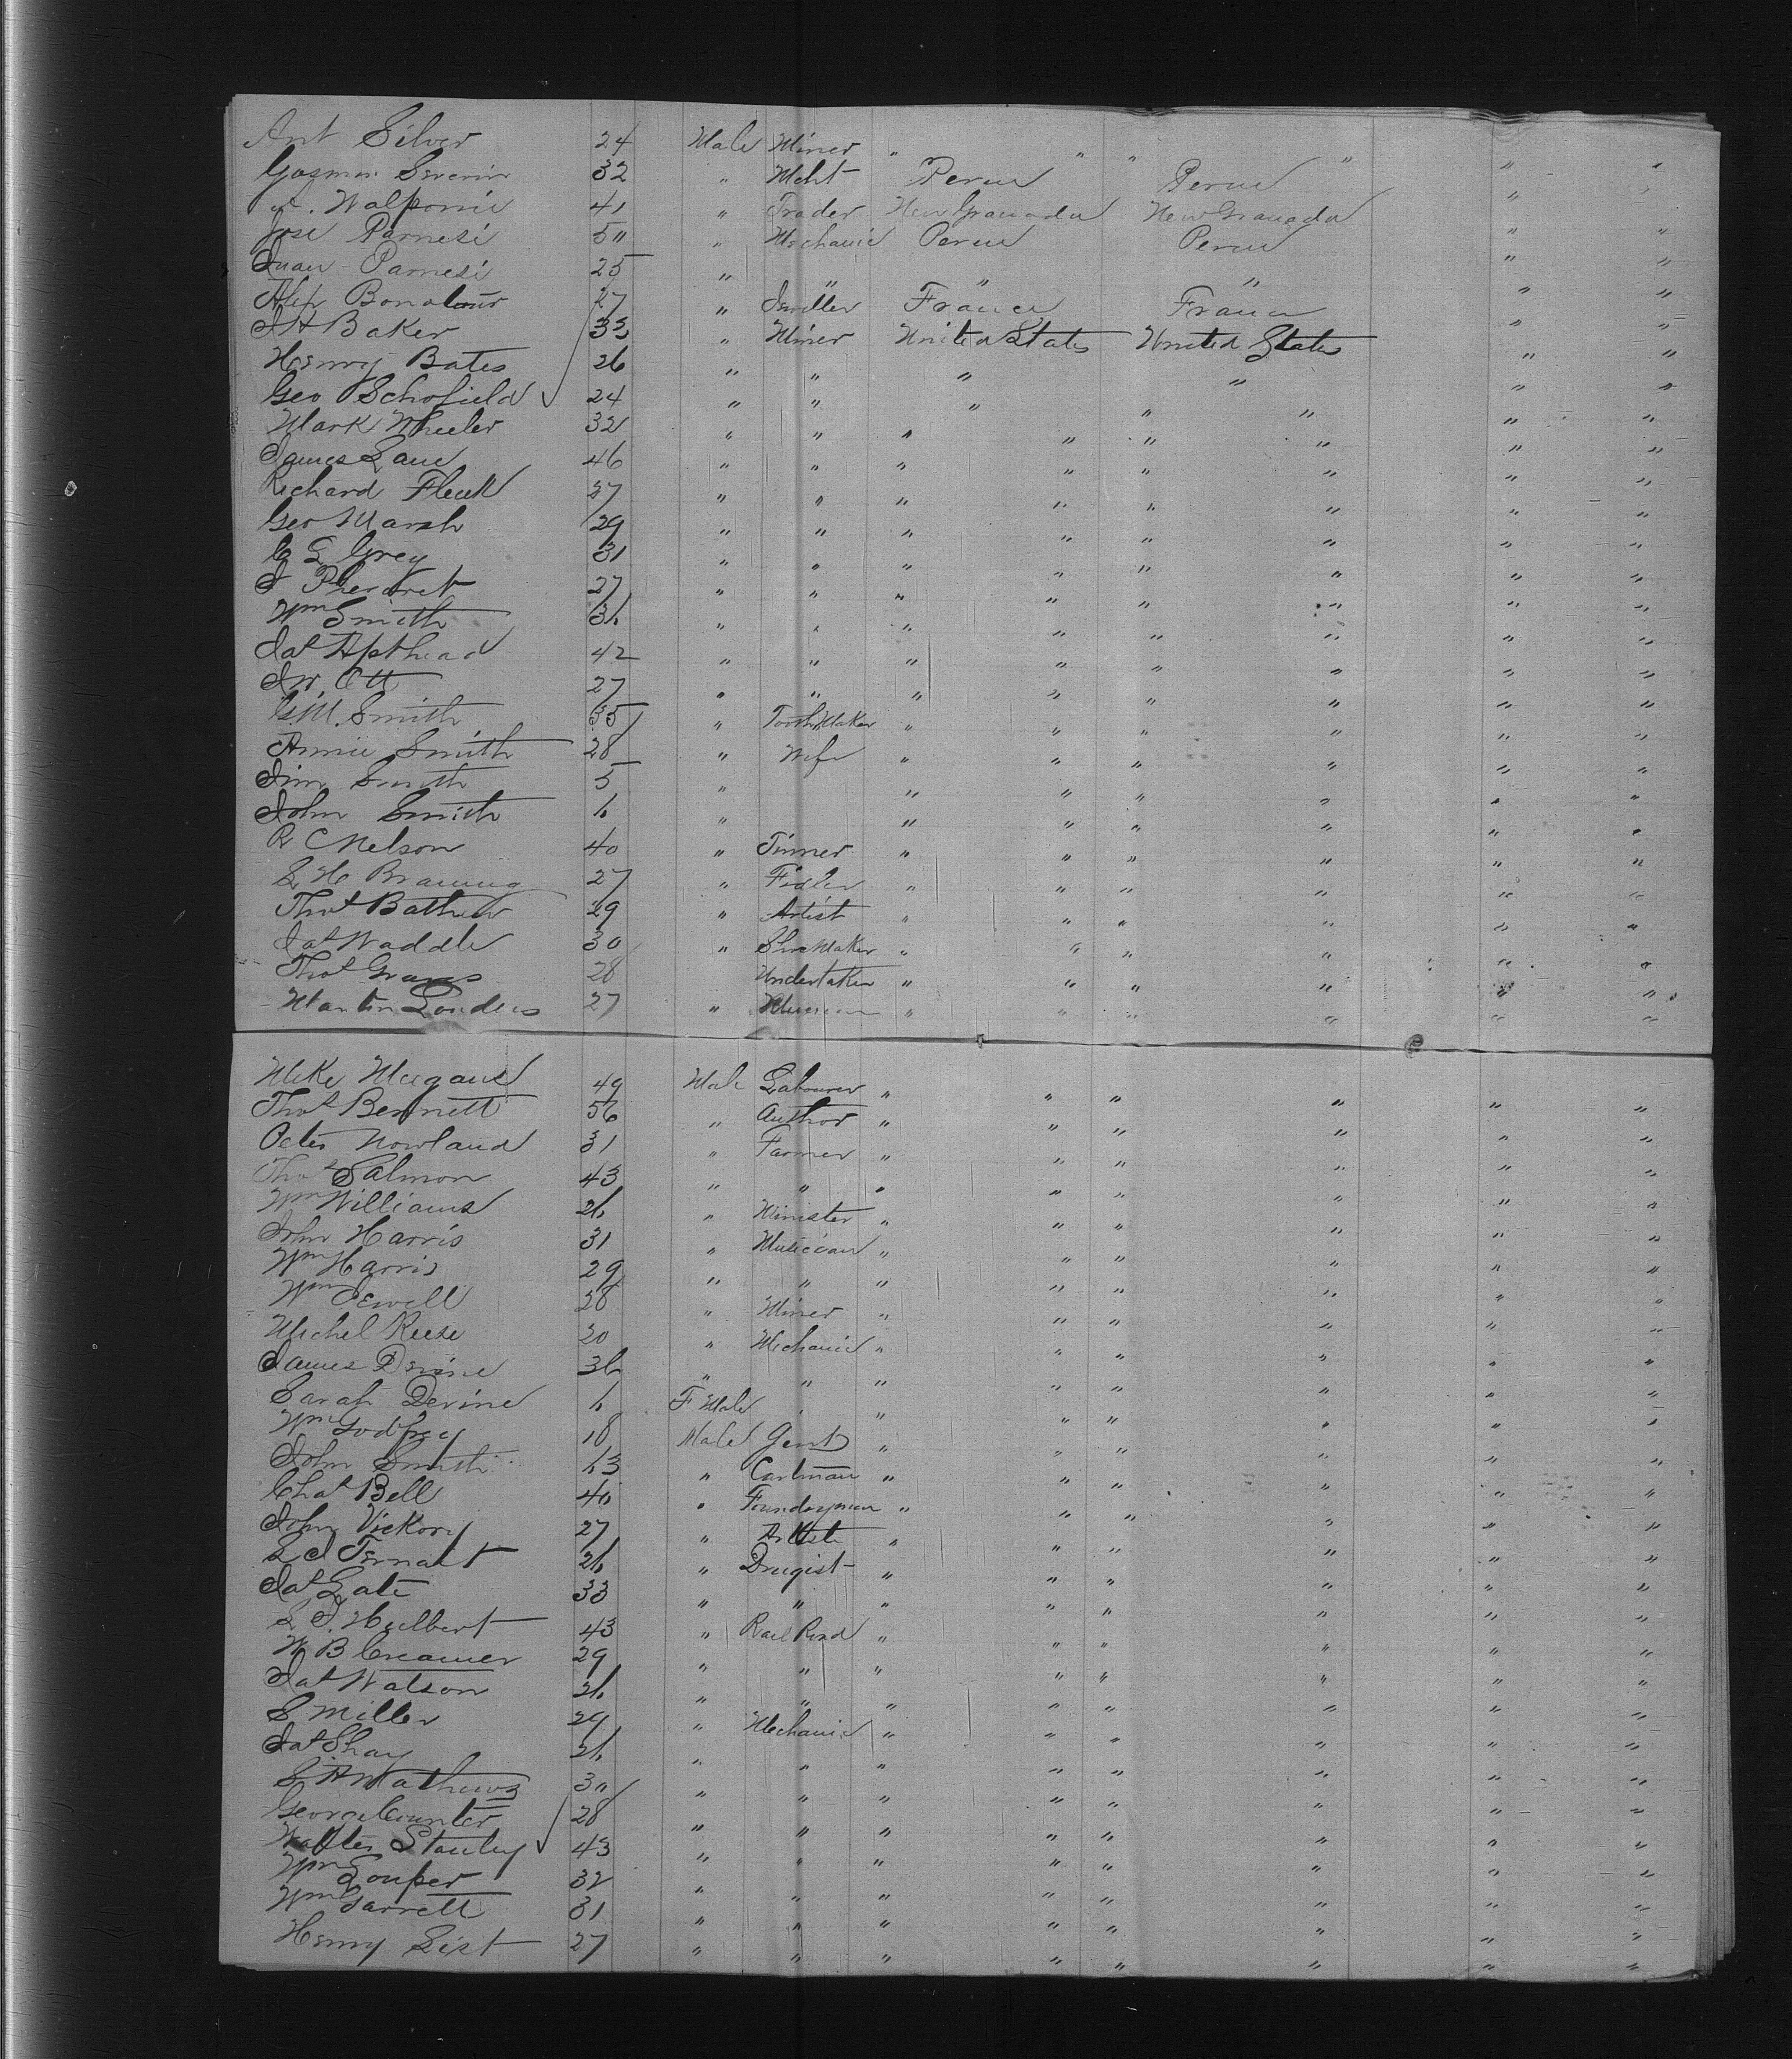 Ant Silver 24 Male Miner " " " " " "
Gasman Severin 32 " Mcht Peru Peru "
A. Walponie 41 " Trader New Granada New Granada "
Jose Parnesi 50 " Mechanic Peru Peru " "
Juan Parnesi 25 " " " " " "
Alex 27 " Jeweller France France " "
J H Baker 33 " Miner United States United States " "
Henry Bates 26 " " " " " "
Geo Schofield 24 " " " " " " "
Mark Wheeler 32 " " " " " " " "
James Lane 46 " " " " " " " "
Richard Fleuk 27 " " " " " " " "
Geo Marsh 29 " " " " " " " "
C G Grey 31 " " " " " " " "
J 27 " " " " " " " "
Wm Smith 36 " " " " " " " "
Jas Apthead 42 " " " " " " " "
J W. Ott 27 " " " " " " " "
G. M. Smith 35 " Tooth Maker " " " " "
Annie Smith 28 " Wife " " " " " "
Jim Smith 5 " " " " " " "
John Smith 6 " " " " " " "
R C Nelson 40 " Tinner " " " " " "
L H Brauning 27 " Fidler " " " " " "
Thos Bathew 29 " Artist " " " " " "
Jas Waddle 30 " Shoe Maker " " " " " "
Thos Graves 28 Undertaker " " " " " "
Martin Louders 27 " " " " " " "
Mike Mugand 49 Male Labourer " " " " " "
Thos Bennett 56 " Author " " " " " "
Peter Nowland 31 " Farmer " " " " " "
Thos Salmon 43 " " " " " " " "
Wm Williams 26 " Minister " " " " " "
John Harris 31 " Musician " " " " " "
Wm Harris 29 " " " " " " " "
Wm Sewell 28 " Miner " " " " " "
Michel Reese 20 " Mechanic " " " " " "
James Devine 36 " " " " " " " "
Sarah Devine 6 F Male " " " " " "
Wm Godfrey 18 Male Gent " " " " " "
John Smith 63 " Cartman " " " " " "
Chas Bell 40 " Foundryman " " " " " "
John Vickory 27 " Artiste " " " " " "
L J Ternant 26 " Drugist " " " " " "
Jas Gate 33 " " " " " " " "
L J. Hulbert 43 " Rail Road " " " " " "
W B Creamer 29 " " " " " " " "
Jas Watson 26 " " " " " " " "
S Miller 29 " Mechanic " " " " " "
Jas Shay 26 " " " " " " " "
S A Mathews 30 " " " " " " " "
George Counter 28 " " " " " " " "
Walter Stanley 43 " " " " " " " "
Wm Souper 32 " " " " " " " "
Wm Garrett 31 " " " " " " " "
Henry List 27 " " " " " " " "